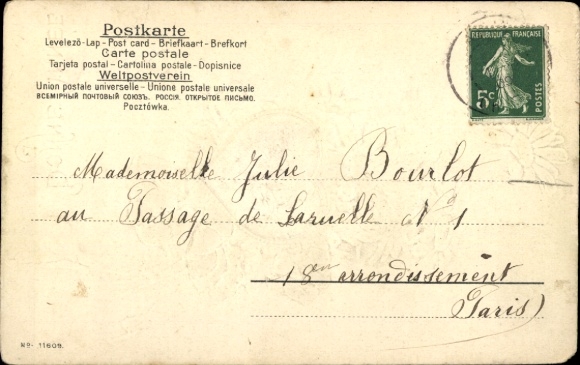 Postkarte
Levelező-Lap - Post card - Briefkaart - Brefkort
Carte postale
Tarjeta postal - Cartolina postale - Dopisnice
Weltpostverein
Union postale universelle - Unione postale universale
ВСЕМІРНЫЙ ПОЧТОВЫЙ СОЮЗЪ. РОССІЯ. ОТКРЫТОЕ ПИСЬМО.
Pocztówka.
REPUBLIQUE FRANÇAISE
5c
POSTES
Mademoiselle Julie Bourlot
au Passage de Laruelle No 1
18em arrondissement
Paris)
No. 11609.